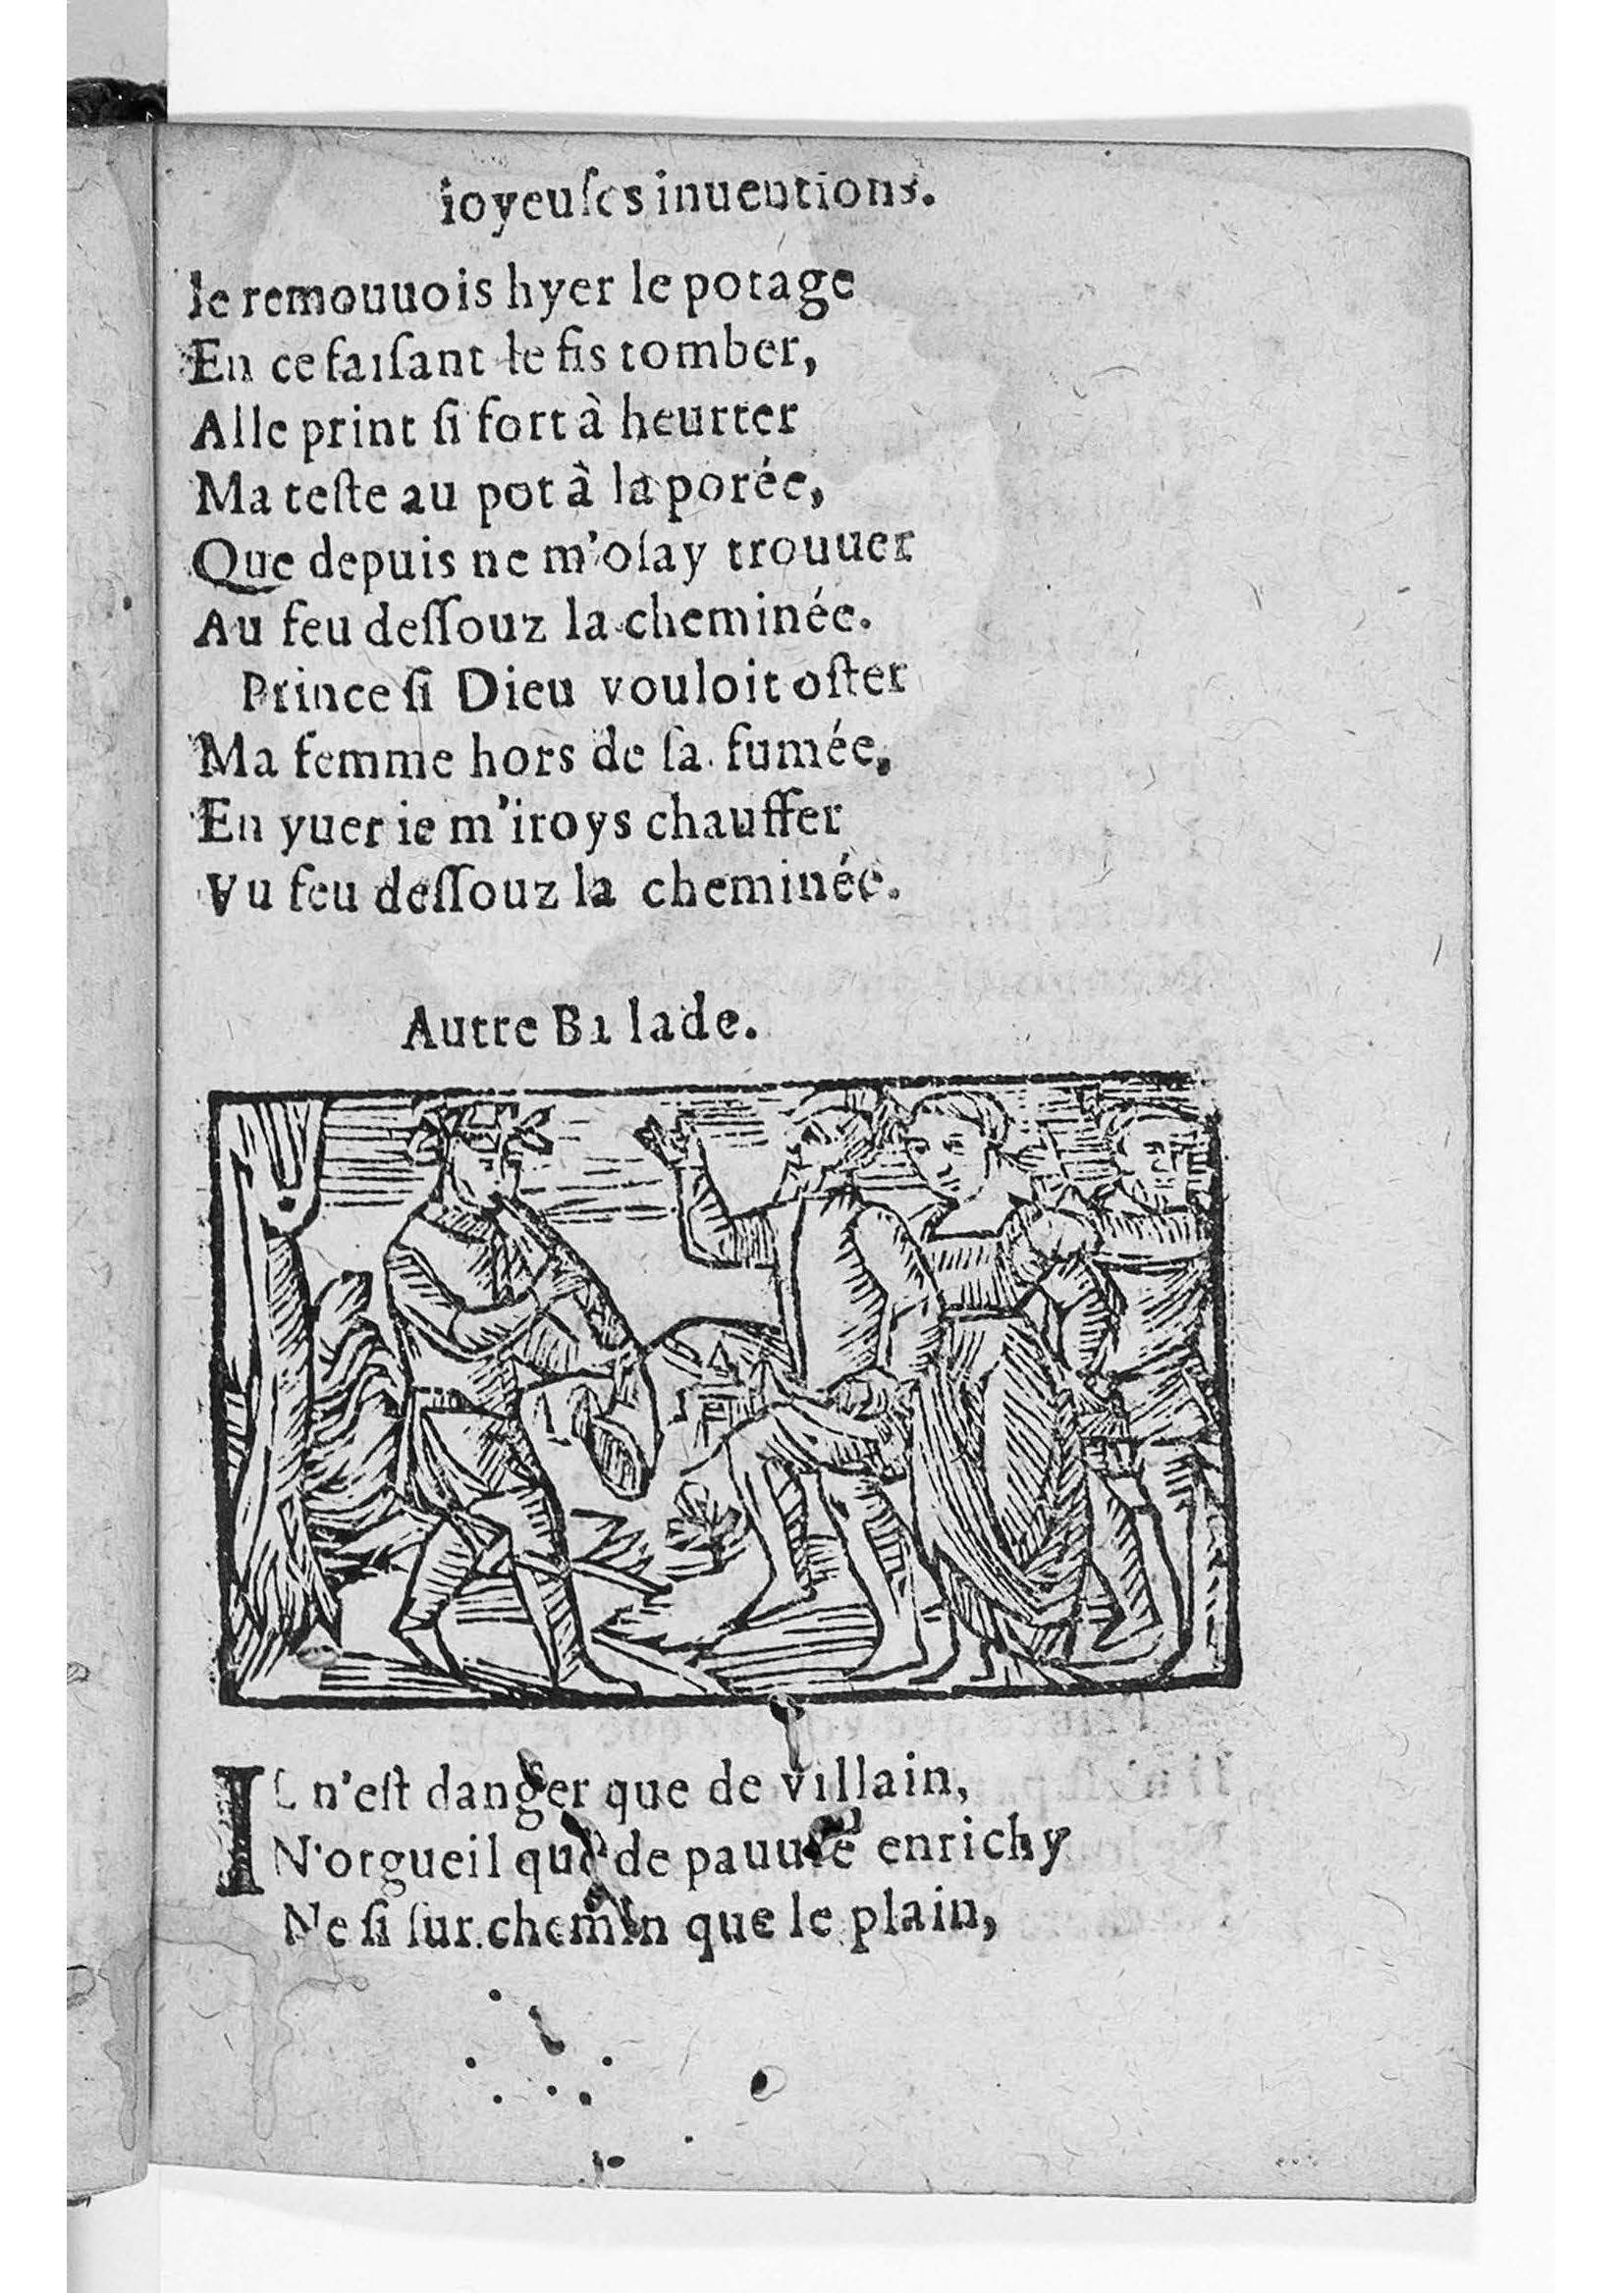 ioyeuſes inuentions.
Ie remouuois hyer le potage
En ce faiſant le fis tomber,
Alle print ſi fort à heurter
Ma teſte au pot à la porée,
Que depuis ne m'oſay trouuer
Au feu deſſouz la cheminée.
Prince ſi Dieu vouloit oſter
Ma femme hors de ſa fumée,
En yuer ie m'iroys chauffer
Au feu deſſouz la cheminée.
Autre Balade.
IL n'eſt danger que de villain,
N'orgueil que de pauure enrichy
Ne ſi ſur chemin que le plain,